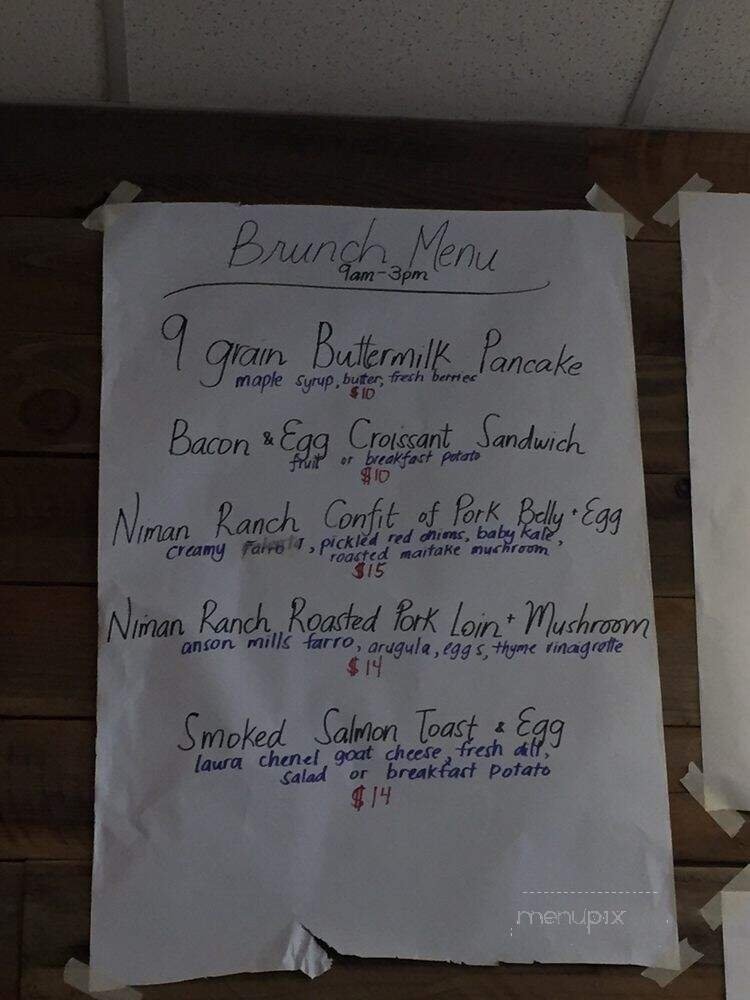 Brunch Menu
9am-3pm
9 grain Buttermilk Pancake
maple syrup, butter, fresh berries
$10
Bacon & Egg Croissant Sandwich
fruit or breakfast potato
$10
Niman Ranch Confit of Pork Belly + Egg
creamy farro, pickled red onions, baby kale,
roasted maitake mushroom
$15
Niman Ranch Roasted Pork Loin + Mushroom
anson mills farro, arugula, eggs, thyme vinaigrette
$14
Smoked Salmon Toast & Egg
laura chenel goat cheese, fresh dill,
salad or breakfast potato
$14
menupix